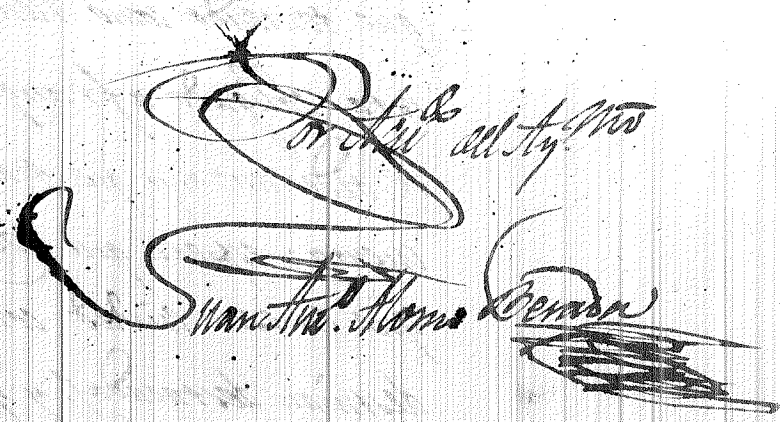 Por Acu.do del Ay.Mto
Juan Ant.o Alonso